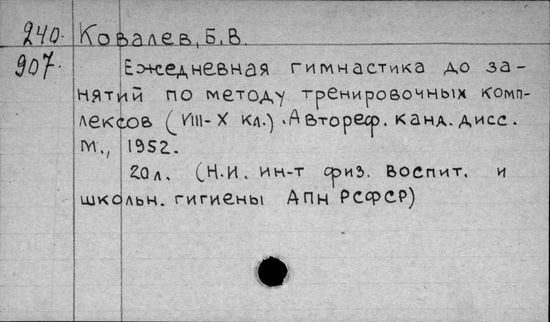 240. Ковалев, Б.В.
907. Ежедневная гимнастика до за-
нятий по методу тренировочных комп-
лексов (VIII-X кл.). Автореф. канд. дисс.
М., 1952.
20л. (Н.И. ин-т физ. воспит. и
школьн. гигиены АПН РСФСР)